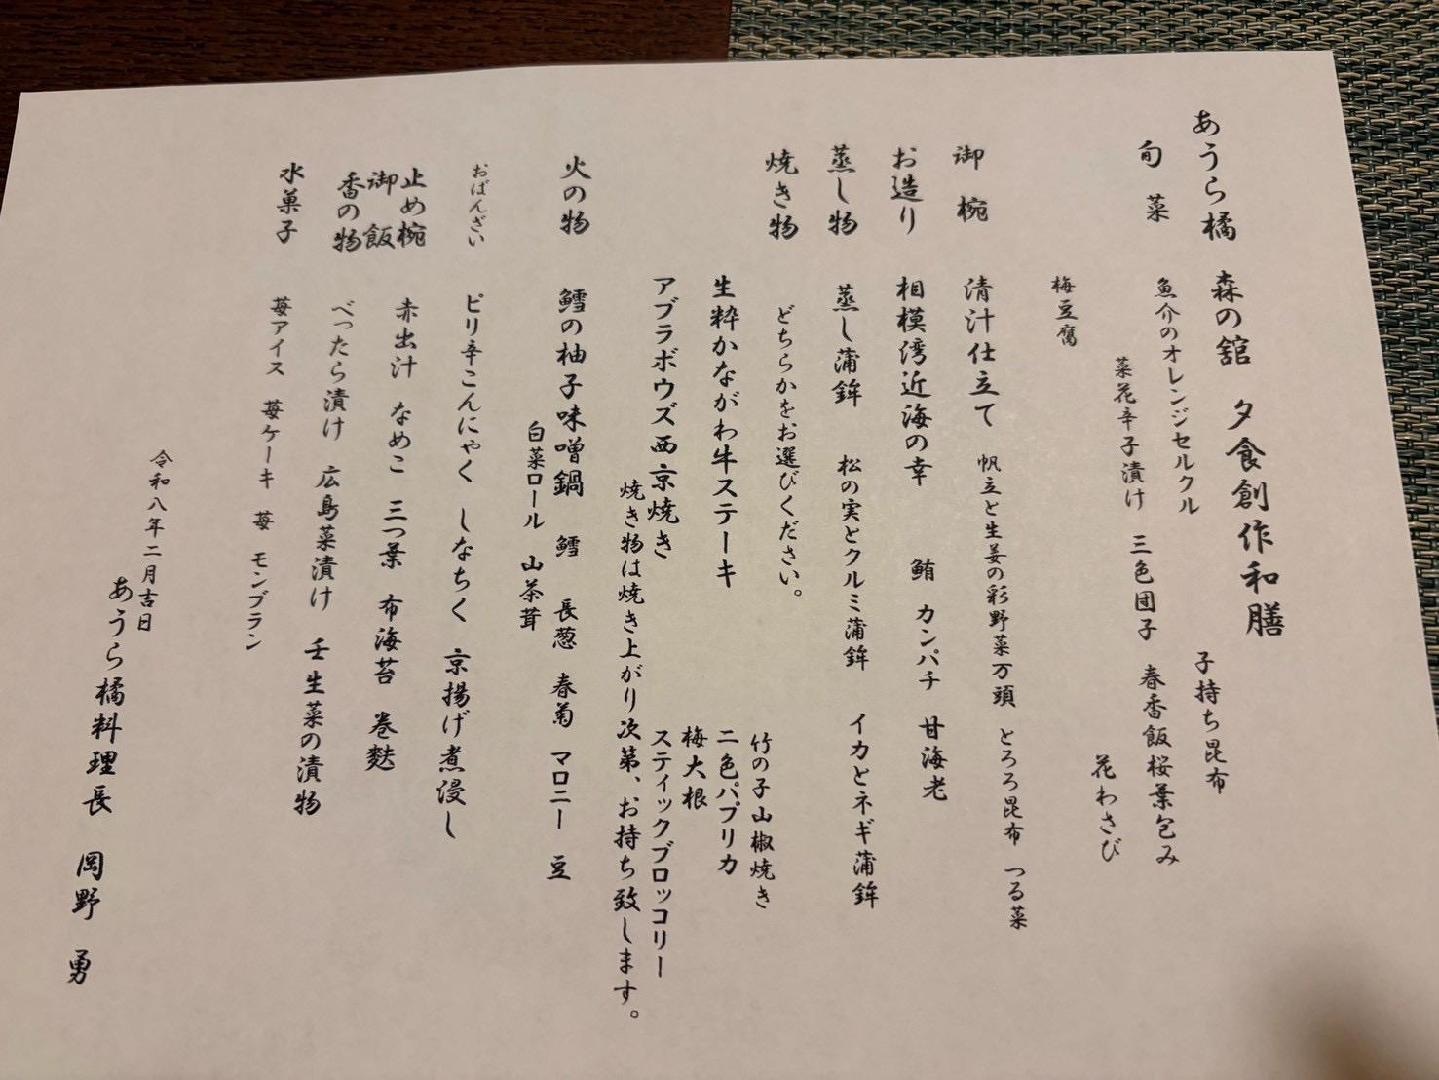 あうら橘 森の舘 夕食創作和膳
旬菜
魚介のオレンジセルクル 子持ち昆布
菜花辛子漬け 三色団子 春香飯桜葉包み
梅豆腐 花わさび
御椀 清汁仕立て 帆立と生姜の彩野菜万頭 とろろ昆布 つる菜
お造り 相模湾近海の幸 鮪 カンパチ 甘海老
蒸し物 蒸し蒲鉾 松の実とクルミ蒲鉾 イカとネギ蒲鉾
焼き物 どちらかをお選びください。
竹の子山椒焼き
生粋かながわ牛ステーキ 二色パプリカ
梅大根
アブラボウズ西京焼き スティックブロッコリー
焼き物は焼き上がり次第、お持ち致します。
火の物 鱈の柚子味噌鍋 鱈 長葱 春菊 マロニー 豆
白菜ロール 山茶茸
おばんざい ピリ辛こんにゃく しなちく 京揚げ煮浸し
止め椀 赤出汁 なめこ 三つ葉 布海苔 巻麩
御飯
香の物 べったら漬け 広島菜漬け 壬生菜の漬物
水菓子 苺アイス 苺ケーキ 苺 モンブラン
令和八年二月吉日
あうら橘料理長 岡野 勇